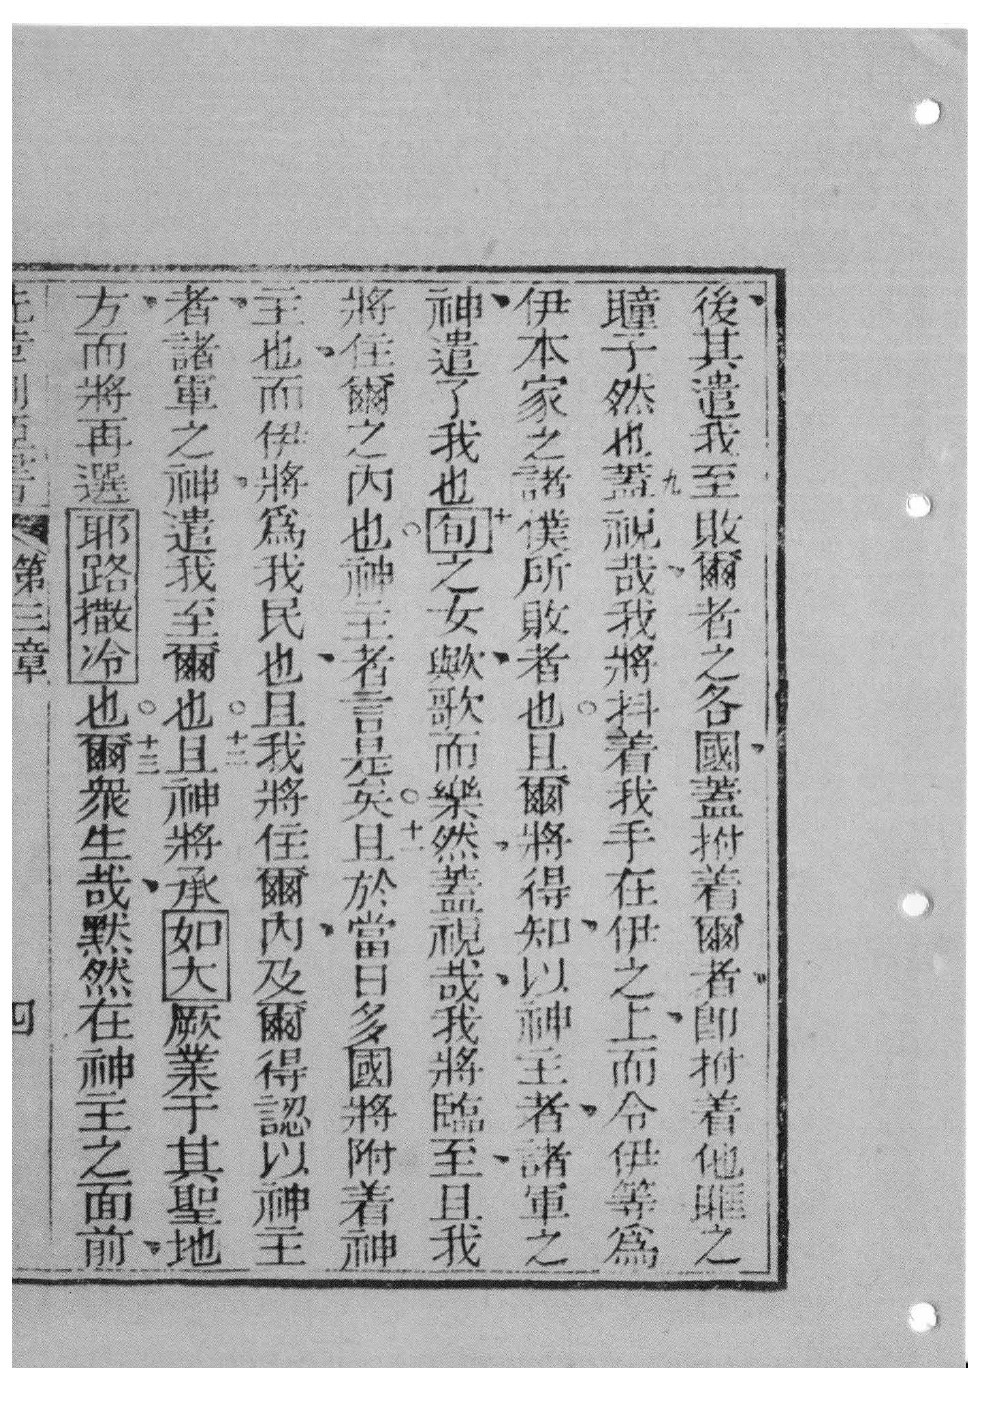 後其遣我至敗爾者之各國蓋拊着爾者卽拊着他眶之
瞳子然也九蓋視哉我將抖着我手在伊之上而令伊等爲
伊本家之諸僕所敗者也○且爾將得知以神主者諸軍之
神遣了我也十旬之女歟歌而樂然蓋視哉我將臨至且我
將住爾之內也○神主者言是矣○十一且於當日多國將附着神
主也而伊將爲我民也且我將住爾內及爾得認以神主
者諸軍之神遣我至爾也○十二且神將承如大厥業于其聖地
方而將再選耶路撒冷也○十三爾衆生哉默然在神主之面前
第三章
四